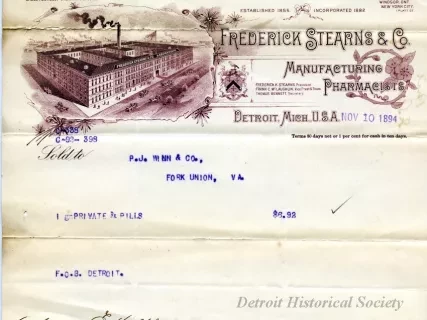 ESTABLISHED 1855. INCORPORATED 1882
WINDSOR, ONT.
NEW YORK CITY.
FREDERICK STEARNS & CO.
MANUFACTURING
PHARMACISTS
FREDERICK K. STEARNS, President
DETROIT, MICH., U.S.A. NOV 10 1894
Terms 60 days net or 1 per cent for cash in ten days.
Sold to P.J. WINN & CO.,
FORK UNION, VA.
PRIVATE PILLS $6.92
F.O.B. DETROIT.
Detroit Historical Society